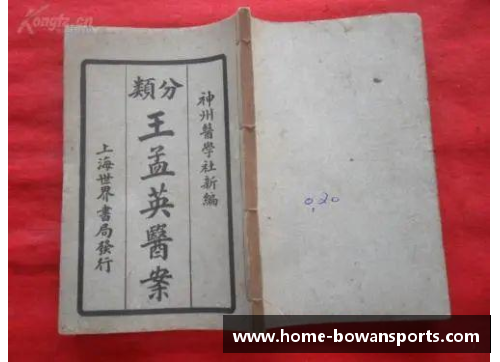 Kongfz.cn
神州醫學社新編
分類
王孟英醫案
上海世界書局發行
0,20
www.home-bowansports.com